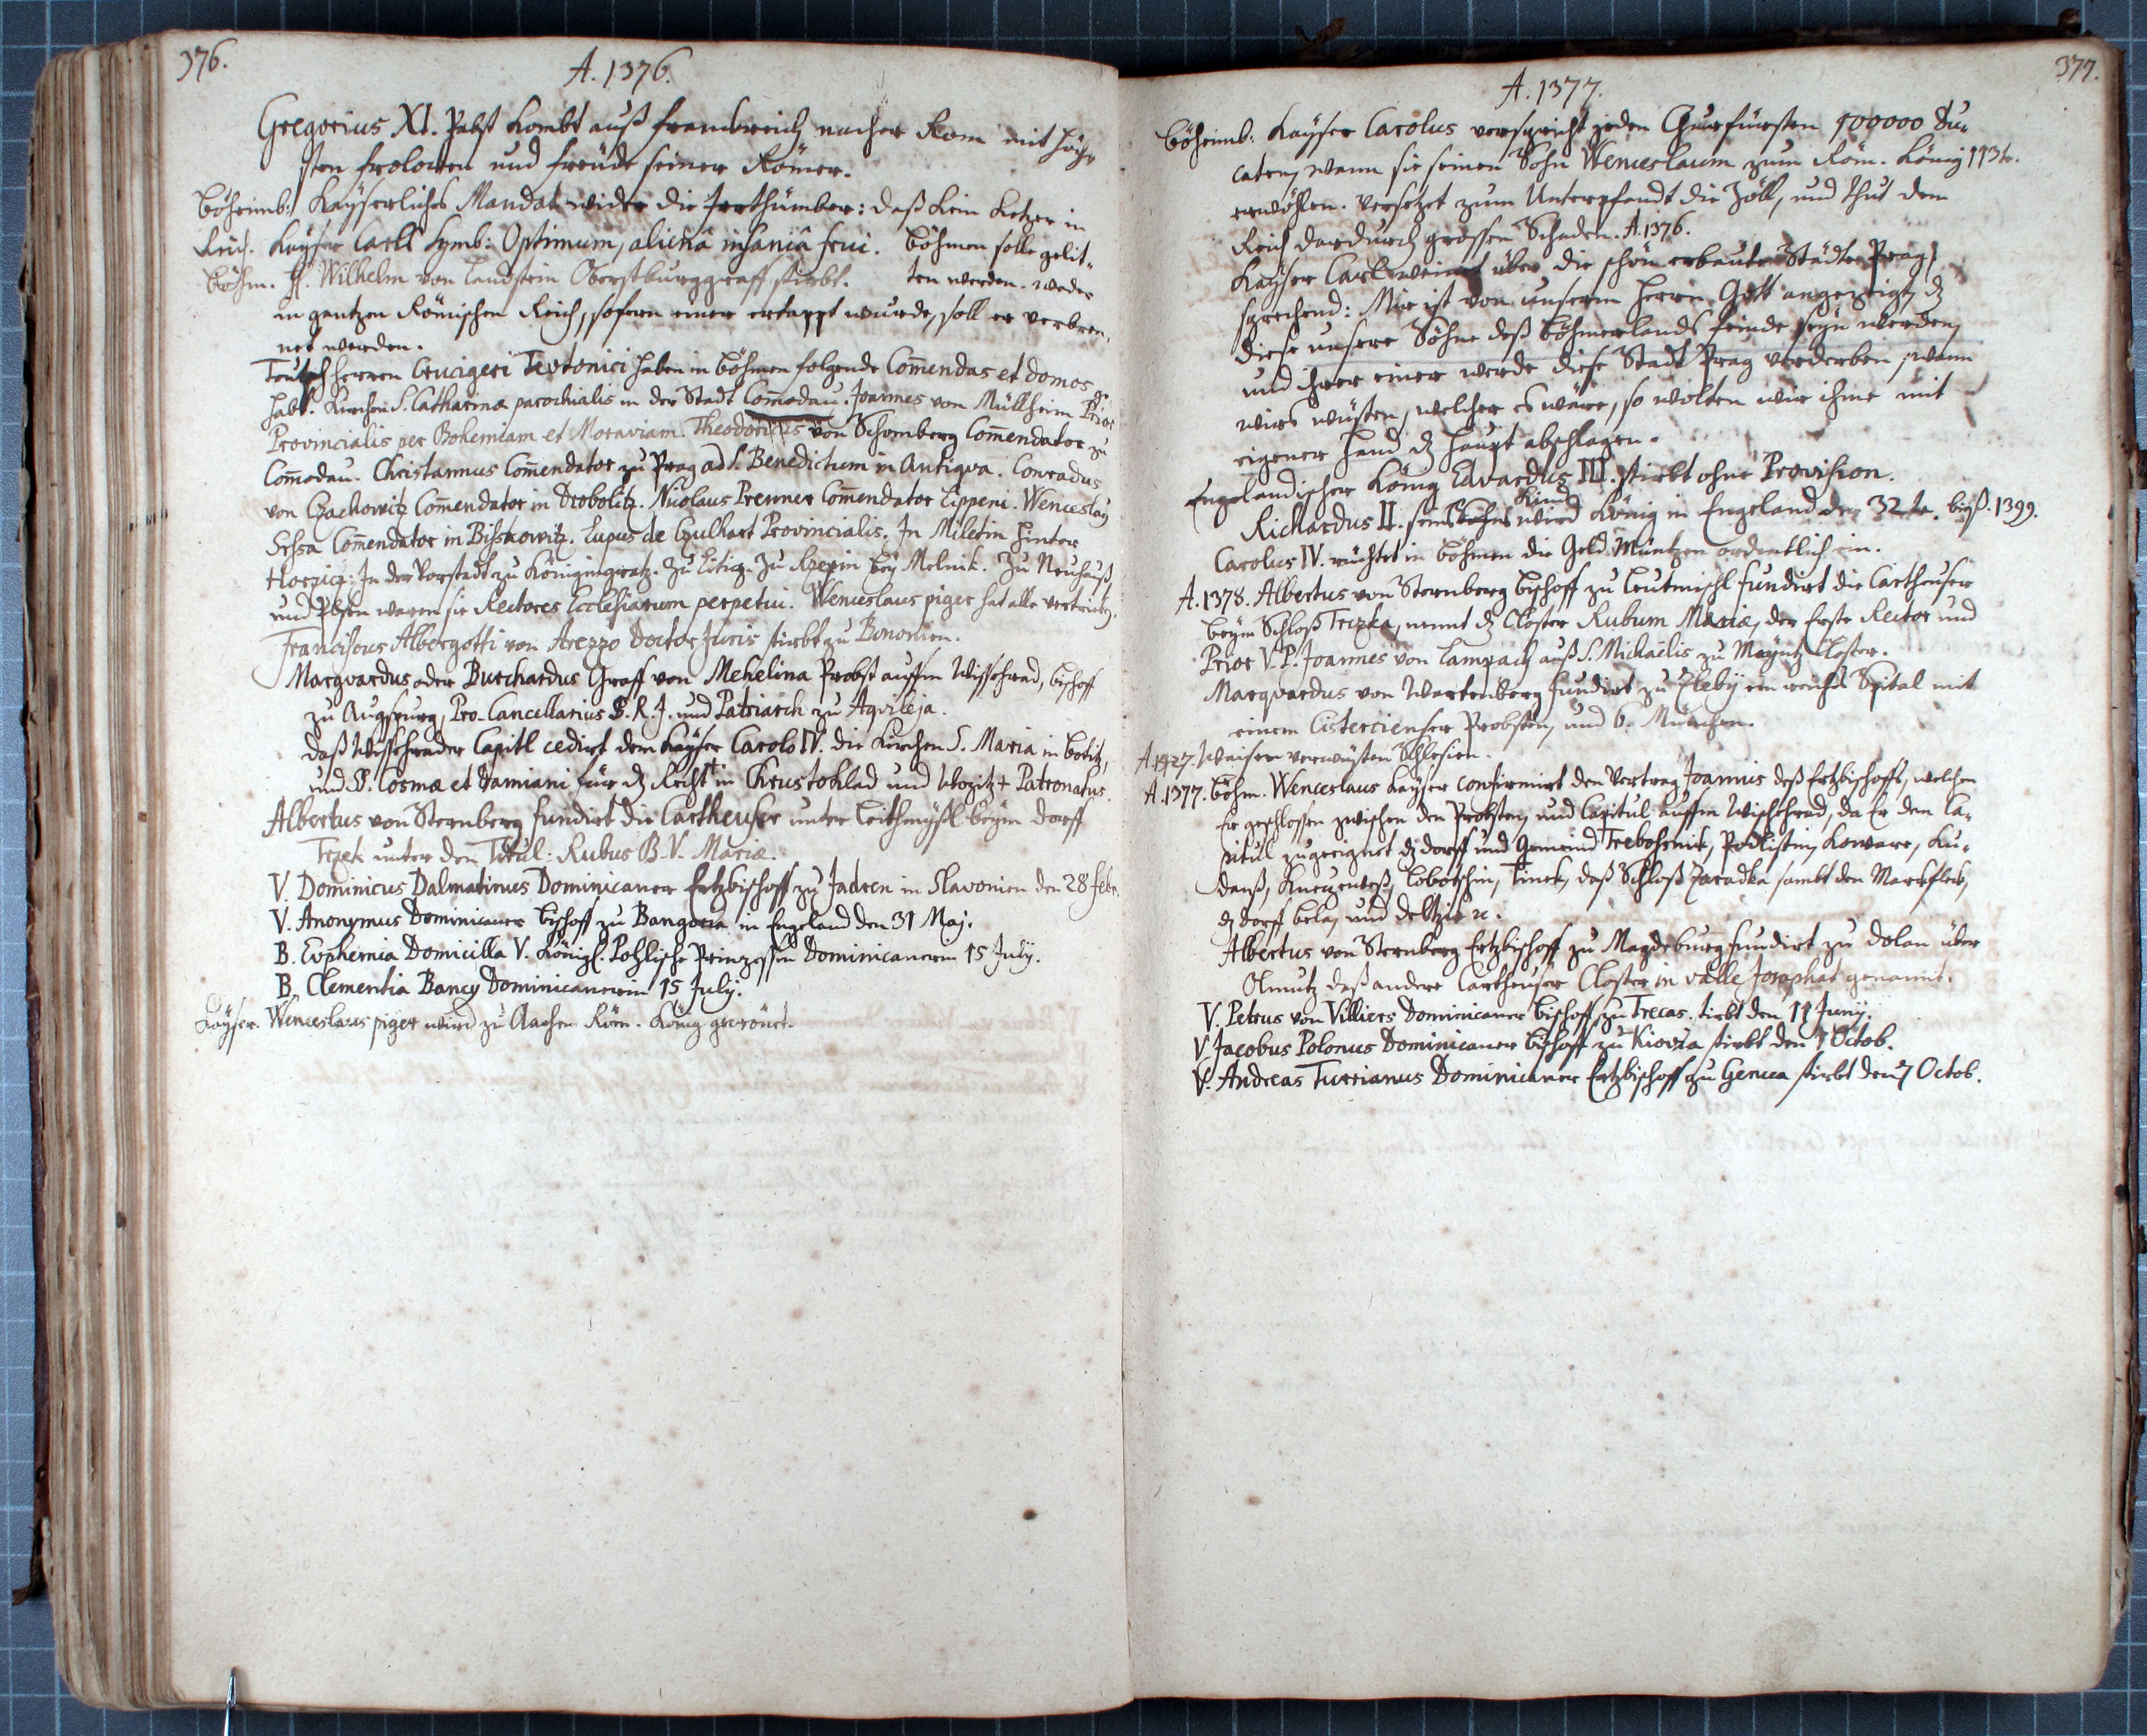 376.
A. 1376.
Gregorius XI. Pabst kombt auß Frankreich nacher Rom mit höch-
sten frolocken und freüde seiner Römer.
Böheimb: Kayserliches Mandat wider die Irrthümber: daß kein Ketzer in
Reich. Kayser Carls Symb: Optimum, alienâ insaniâ frui. Böhmen solle gelit-
Böhm. H. Wilhelm von Landstein Oberstburggraff stirbt. ten werden. weder
in gantzen Römischen Reich, sofern einer ertappt wurde, soll er verbren-
net werden.
Teutsch Herren Crucigeri Teutonici haben in Böhmen folgende Com̄endas et domos
habt. Kirchen S. Catharinæ parochialis in der Stadt Com̄odau. Joannes von Müllheim Prior
Provincialis per Bohemiam et Moraviam. Theodoricus von Schomberg Com̄endator zu
Com̄odau. Christannus Com̄endator zu Prag ad S. Benedictum in Antiqva. Conradus
von Czachowitz Com̄endator in Drobolitz. Nicolaus Prenner Com̄endator Lippeni. Wenceslaus
Com̄endator in Biskowitz. Lupus de Provincialis. In Miletin hinter
Horzicz. In der Vorstadt zu Königingratz. Zu Liticz. Zu Rzepin bey Melnik. Zu Neuhauß,
und Pilsen waren sie Rectores Ecclesiarum perpetui. Wenceslaus piger hat alle vertrieben.
Franciscus Albergotti von Arezzo Doctor Juris stirbt zu Bononien.
Marqvardus oder Burchardus Graff von Mehelina Probst auffm Wissehrad, Bischoff
zu Augspurg, Pro-Cancellarius S. R. J. und Patriarch zu Aqvileja.
Daß Wissehrader Capitl cedirt dem Kayser Carolo IV. die Kirchen S. Maria in Botitz,
und SS. Cosmæ et Damiani für dz Recht + in Chrustoklad und Wozitz + Patronatus.
Albertus von Sternberg fundirt die Cartheuser unter Leithmyschl beym Dorff
Trzek unter den Titul: Rubus B. V. Mariæ.
V. Dominicus Dalmatinus Dominicaner Ertzbischoff zu Jadren in Slavonien den 28 Febr.
V. Anonymus Dominicaner Bischoff zu Bangoria in Engeland den 31 Maj.
B. Euphemia Domicilla V. Königl. Pohlische Prinzessin Dominicanerin 15 Julij.
B. Clementia Bancy Dominicanerin 15 Julij.
Kayser. Wenceslaus piger wird zu Aachen Röm. König gecrönet.
377.
A. 1377.
Böheimb: Kayser Carolus verspricht jeden Churfürsten 100000 Du-
caten, wann sie seinen Sohn Wenceslaum zum Röm. König 113te.
erwöhlen. Versetzet zum Unterpfandt die Zöll, und thut dem
Reich dardurch grossen Schaden. A. 1376.
Kayser Carl weinet über die schön erbaute Stadt Prag,
sprechend: Mir ist von unserm Herrn Gott angezeigt, dz
diese unsere Söhne deß Böhmerlands feinde seyn werden,
und ihrer einer werde diese Stadt Prag verderben, wann
wirs wüsten, welcher es wäre, so wolten wir ihme mit
eigener Hand dz Haupt abschlagen.
Engelandischer König Edvardus III. stirbt ohne Provision.
Richardus II. seins Sohns Kind wird König in Engeland der 32te. biß. 1399.
Carolus IV. richtet in Böhmen die Geld Müntzen ordentlich ein.
A. 1378. Albertus von Sternberg Bischoff zu Leutmischl fundirt die Cartheuser
beym Schloß Trzka, nennt dz Closter Rubum Mariæ, der Erste Rector und
Prior V. P. Joannes von Lampach auß S. Michaëlis zu Mayntz Closter.
Marqvardus von Wartenberg fundirt zu Zleby ein reiches Spital mit
einem Cistercienser Probsten, und 6. München.
A. 1427. Waisen verwüsten Schlesien.
A. 1377. Böhm. Wenceslaus Kayser confirmirt den Vertrag Joannis deß Ertzbischoffs, welchen
Er geschlossen zwischen den Probsten, und Capitul auffm Wischehrad, da Er dem Ca-
pitul zugeeignet dz Dorff und Gemeind Trebohenik, Podlistin, Koware, Ku-
danß, Knezeweß, Lobotschin, Tinek, daß Schloß Zaradka sambt den Marckfleck,
dz Dorff Bela, und Deltzik ꝛc.
Albertus von Sternberg Ertzbischoff zu Magdeburg fundirt zu Dolan über
Olmutz daß andere Cartheuser Closter in valle Josaphat genannt.
V. Petrus von Villiers Dominicaner Bischoff zu Trecas. stirbt den 11 Junij.
V. Jacobus Polonus Dominicaner Bischoff zu Kiovia stirbt den 7 Octob.
V. Andreas Turrianus Dominicaner Ertzbischoff zu Genua stirbt den 7 Octob.